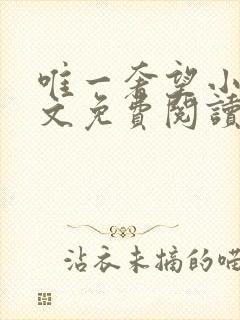 唯一奢望小
文免費閱讀
沾衣未摘的喵